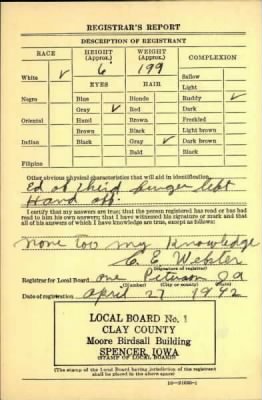 REGISTRAR'S REPORT
DESCRIPTION OF REGISTRANT
RACE HEIGHT (Approx.) WEIGHT (Approx.) COMPLEXION
White ✓ 6 199 Sallow
EYES HAIR Light
Negro Blue Blonde Ruddy ✓
Gray ✓ Red Dark
Oriental Hazel Brown Freckled
Brown Black Light brown
Indian Black Gray ✓ Dark brown
Bald Black
Filipino
Other obvious physical characteristics that will aid in identification
Ed of third finger left
Hand off.
I certify that my answers are true; that the person registered has read or has had
read to him his own answers; that I have witnessed his signature or mark and that
all of his answers of which I have knowledge are true, except as follows:
None Too my Knowledge
C. E. Webler
(Signature of registrar)
Registrar for Local Board one Peterson Ia
(Number) (City or county) (State)
Date of registration April 27 1942
LOCAL BOARD No. 1
CLAY COUNTY
Moore Birdsall Building
SPENCER, IOWA
(STAMP OF LOCAL BOARD)
(The stamp of the Local Board having jurisdiction of the registrant
shall be placed in the above space)